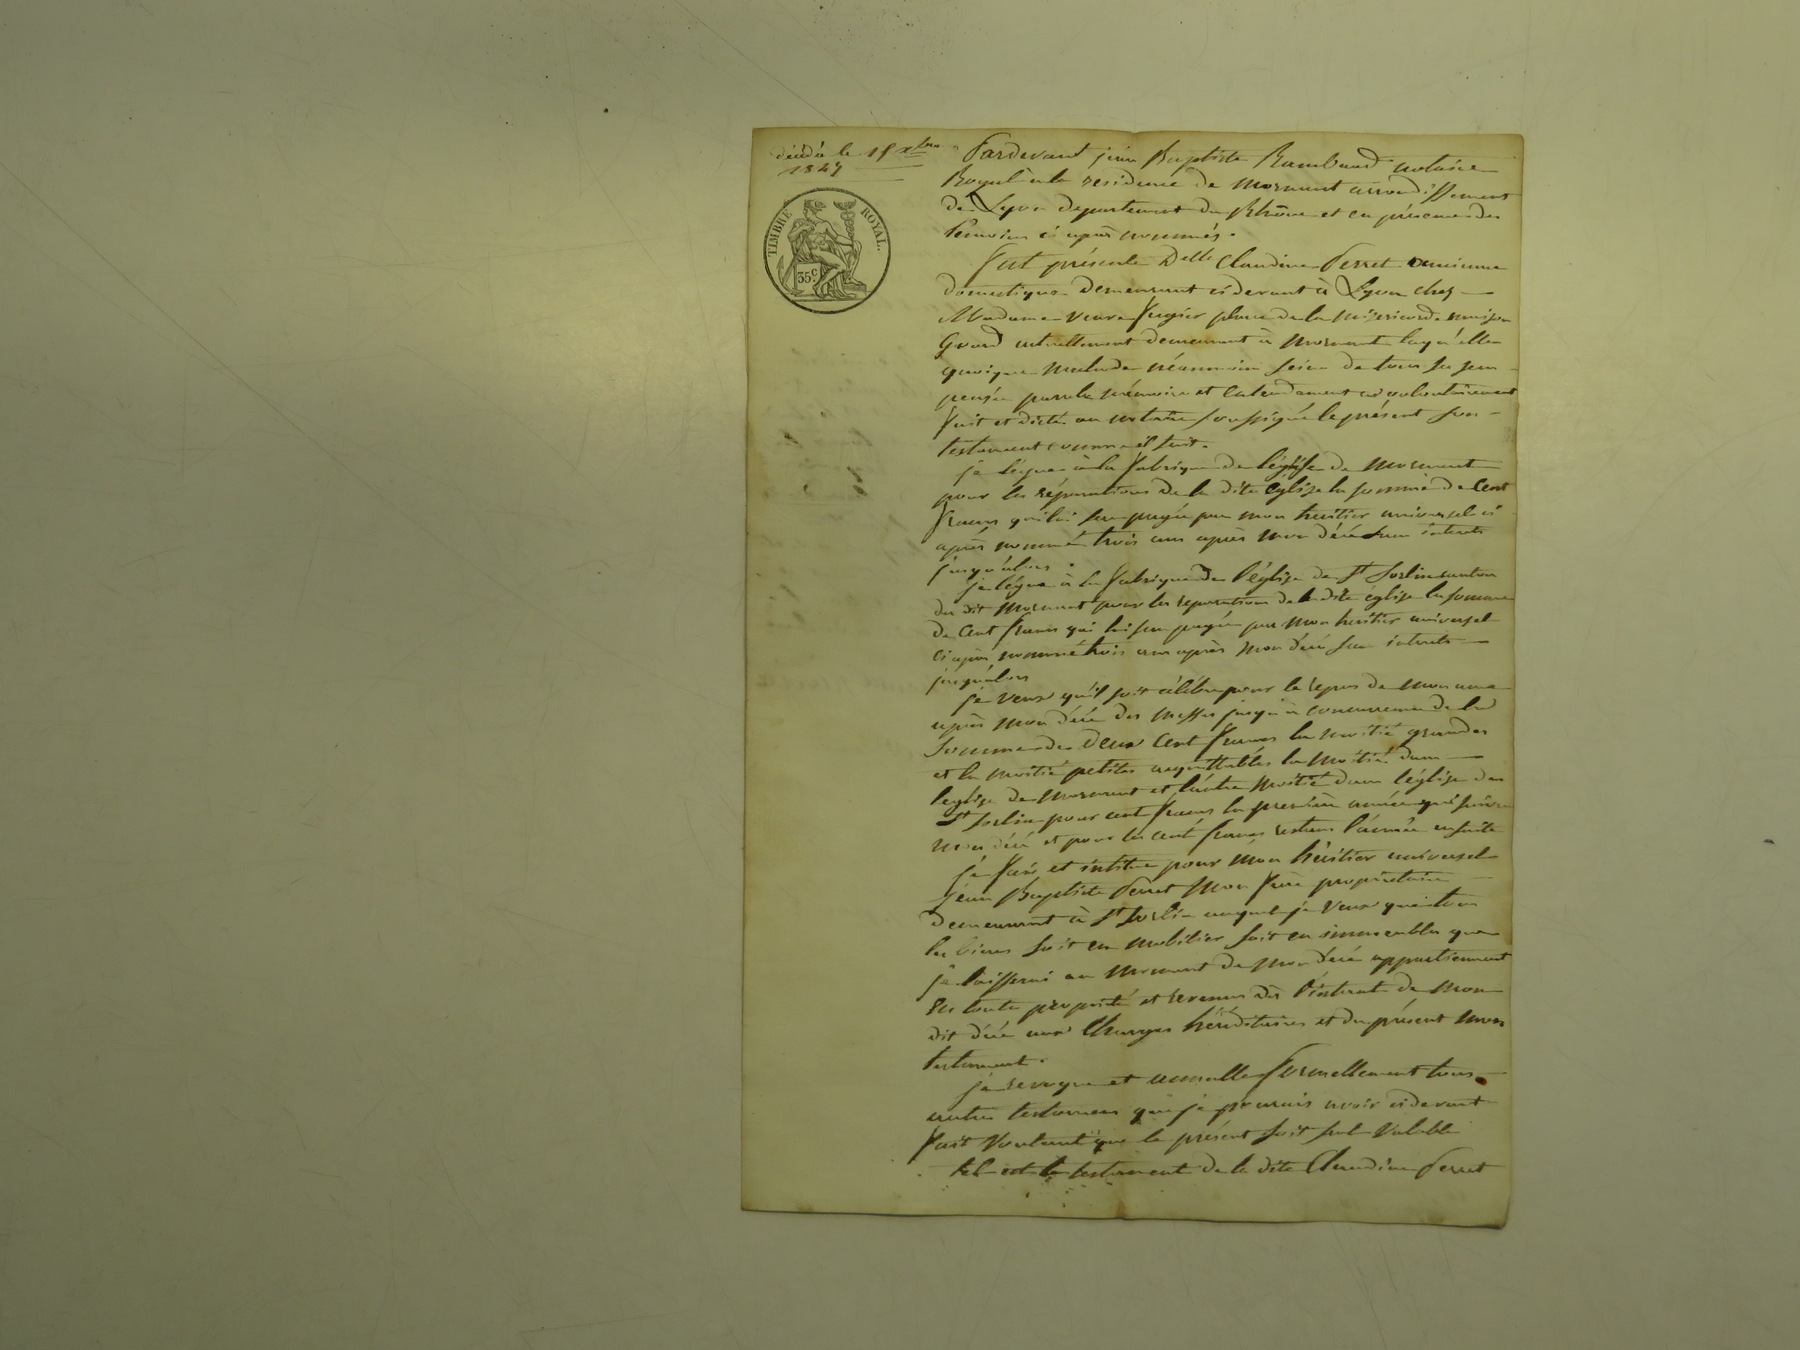 décédée le 15 xbre
1847
TIMBRE ROYAL.
35 c.
Pardevant jean Baptiste Rambaud notaire
Royal à la residence de Mornant arrondissement
de Lyon departement du Rhône et en présence des
témoins ci après nommés.
fut présente Delle Claudine Perret ancienne
domestique demeurant cidevant à Lyon chez
Madame veuve place de la Miséricorde maison
actuellement demeurant à Mornant laquelle
quoique malade néanmoins saine de tous ses sens
pensée parole mémoire et entendement a volontairement
fait et dicté au notaire soussigné le présent son
testament comme il suit.
je lègue à la fabrique de l'église de Mornant
pour les réparations de la dite église la somme de cent
francs qui lui sera payée par mon heritier universel ci
après nommé trois ans après mon décé sans intérets
jusqu'alors.
je lègue à la fabrique de l'église de St Sorlin canton
du dit Mornant pour les reparations de la dite église la somme
de cent francs qui lui sera payée par mon heritier universel
ci après nommé trois ans après mon décé sans intérets
jusqu'alors
je veux qu'il soit célébré pour le repos de mon ame
après mon décé des messes jusqu'à concurrence de la
somme de deux cent francs la moitié grandes
et la moitié petites acquittables la moitié dans
l'eglise de Mornant et l'autre moitié dans l'église de
St Sorlin pour cent francs la première année qui suivra
mon décé et pour les cent francs restans l'année ensuite
je fais et institue pour mon héritier universel
jean Baptiste Perret mon frère propriétaire
demeurant à St Sorlin auquel je veux que tous
les biens soit en mobilier soit en immeubles que
je laisserai au moment de mon décé appartiennent
en toute propriété et revenus dès l'instant de mon
dit décé aux charges héréditaires et du présent mon
testament.
je revoque et annulle formellement tous
autres testamens que je pourrais avoir cidevant
fait voulant que le présent soit seul valable
tel est le testament de la dite Claudine Perret